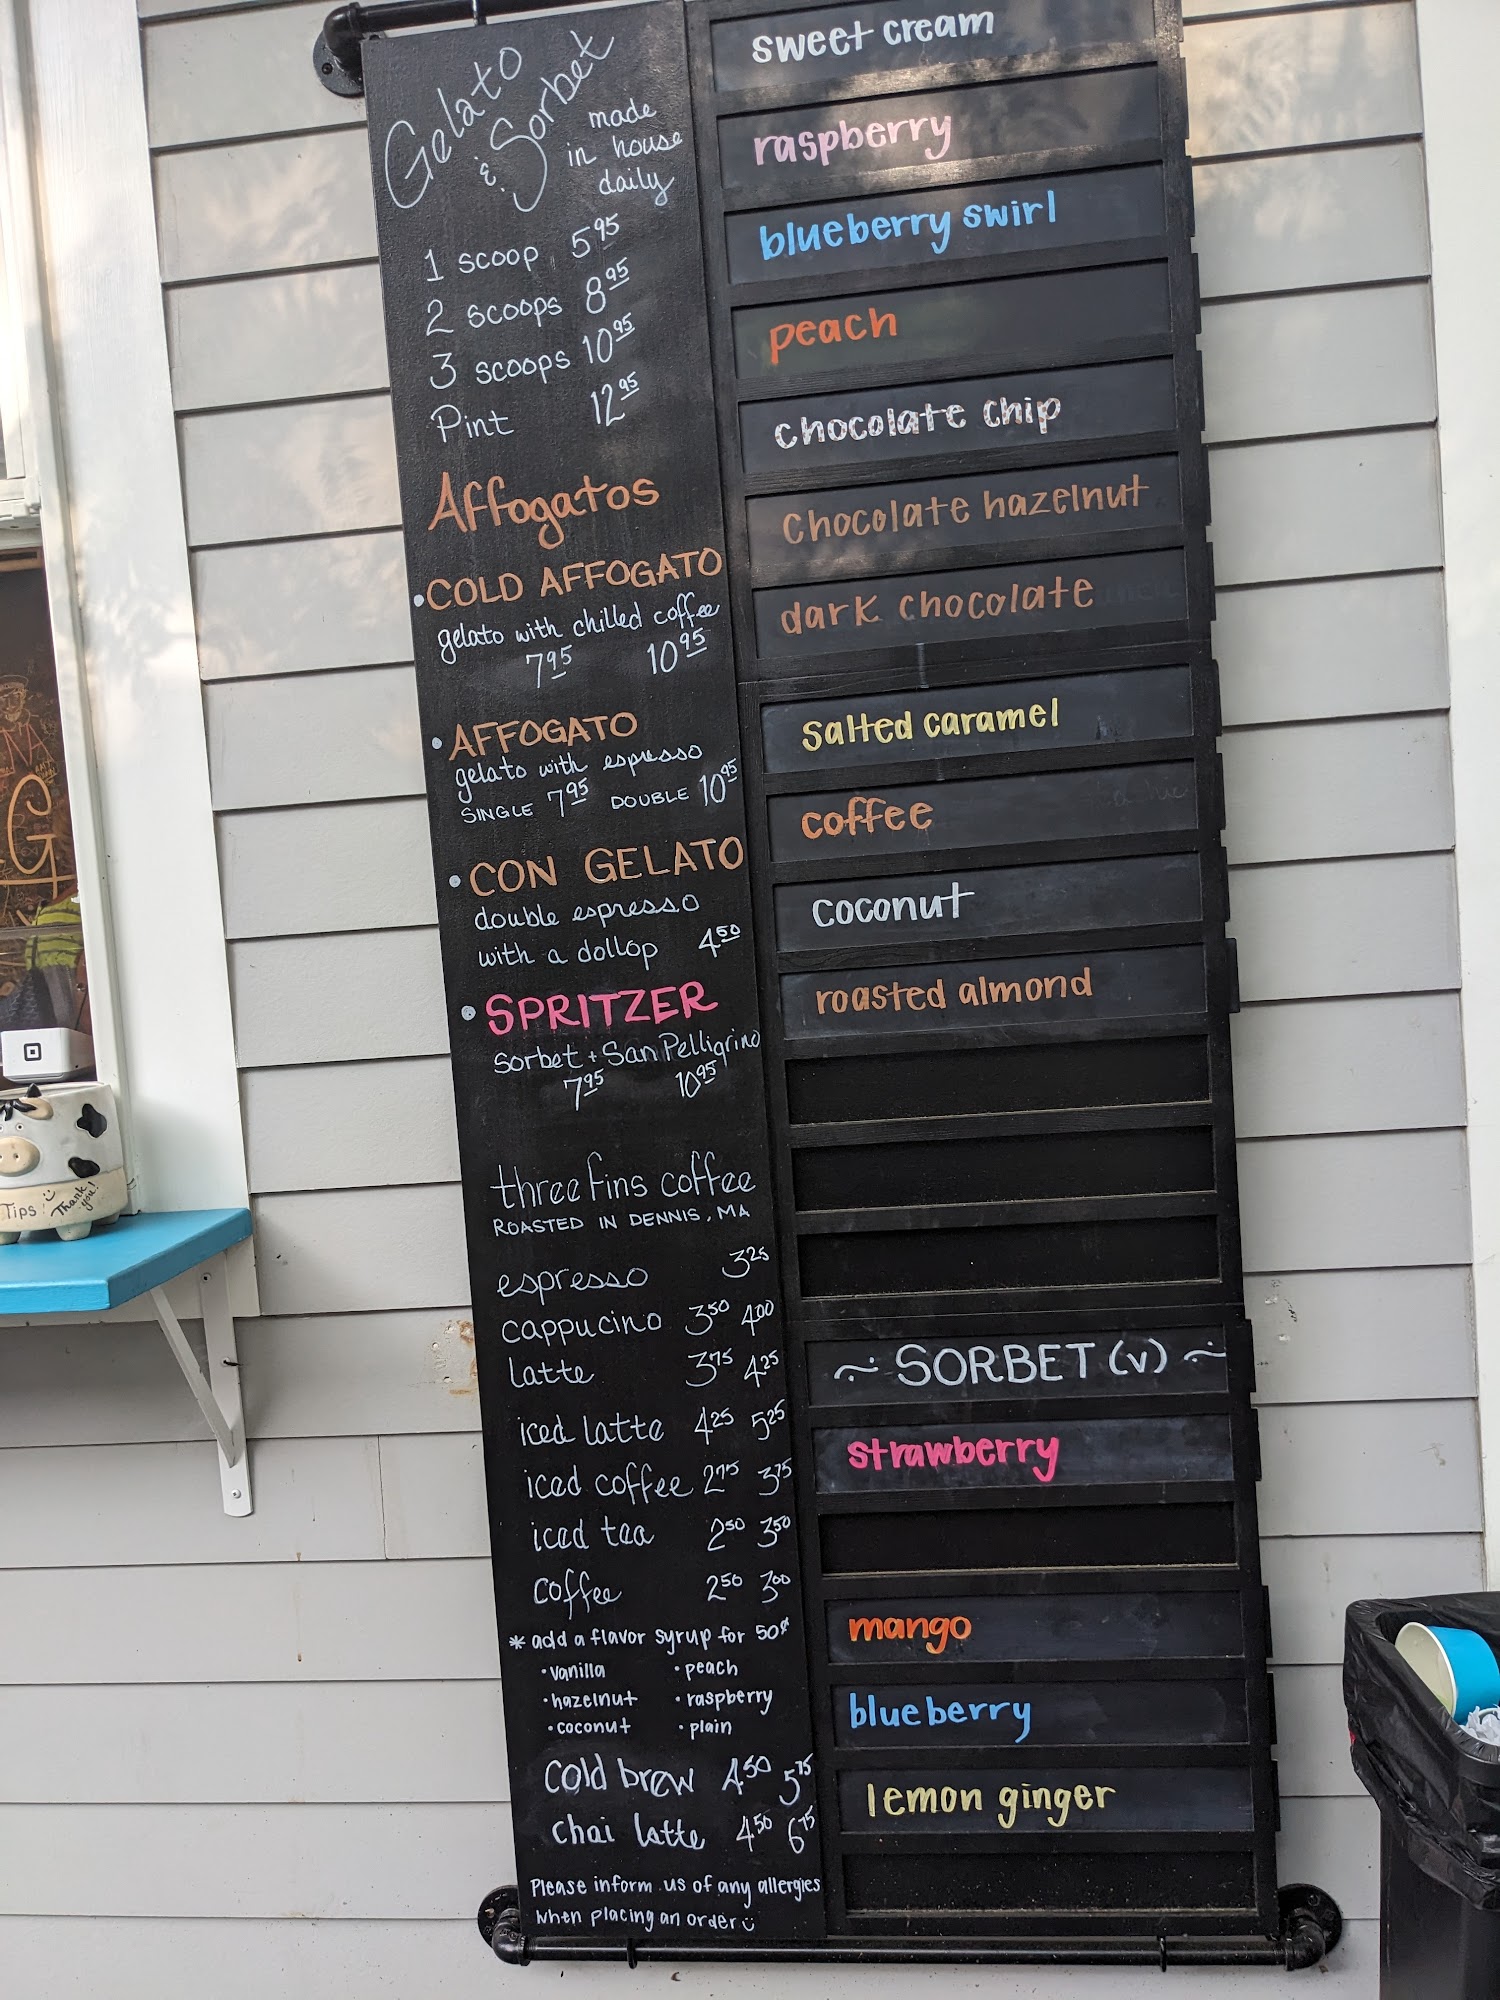 Gelato
& Sorbet
made
in house
daily
1 scoop 5.95
2 scoops 8.95
3 scoops 10.95
Pint 12.95
Affogatos
• COLD AFFOGATO
gelato with chilled coffee
7.95 10.95
• AFFOGATO
gelato with espresso
SINGLE 7.95 DOUBLE 10.95
• CON GELATO
double espresso
with a dollop 4.50
• SPRITZER
sorbet + San Pelligrino
7.95 10.95
three fins coffee
ROASTED IN DENNIS, MA
espresso 3.25
cappucino 3.50 4.00
latte 3.75 4.25
iced latte 4.25 5.25
iced coffee 2.75 3.75
iced tea 2.50 3.50
coffee 2.50 3.00
* add a flavor syrup for 50¢
• vanilla • peach
• hazelnut • raspberry
• coconut • plain
cold brew 4.50 5.75
chai latte 4.50 6.75
Please inform us of any allergies
when placing an order
sweet cream
raspberry
blueberry swirl
peach
chocolate chip
chocolate hazelnut
dark chocolate
salted caramel
coffee
coconut
roasted almond
~ SORBET (v) ~
strawberry
mango
blueberry
lemon ginger
Tips!
Thank
you!
G